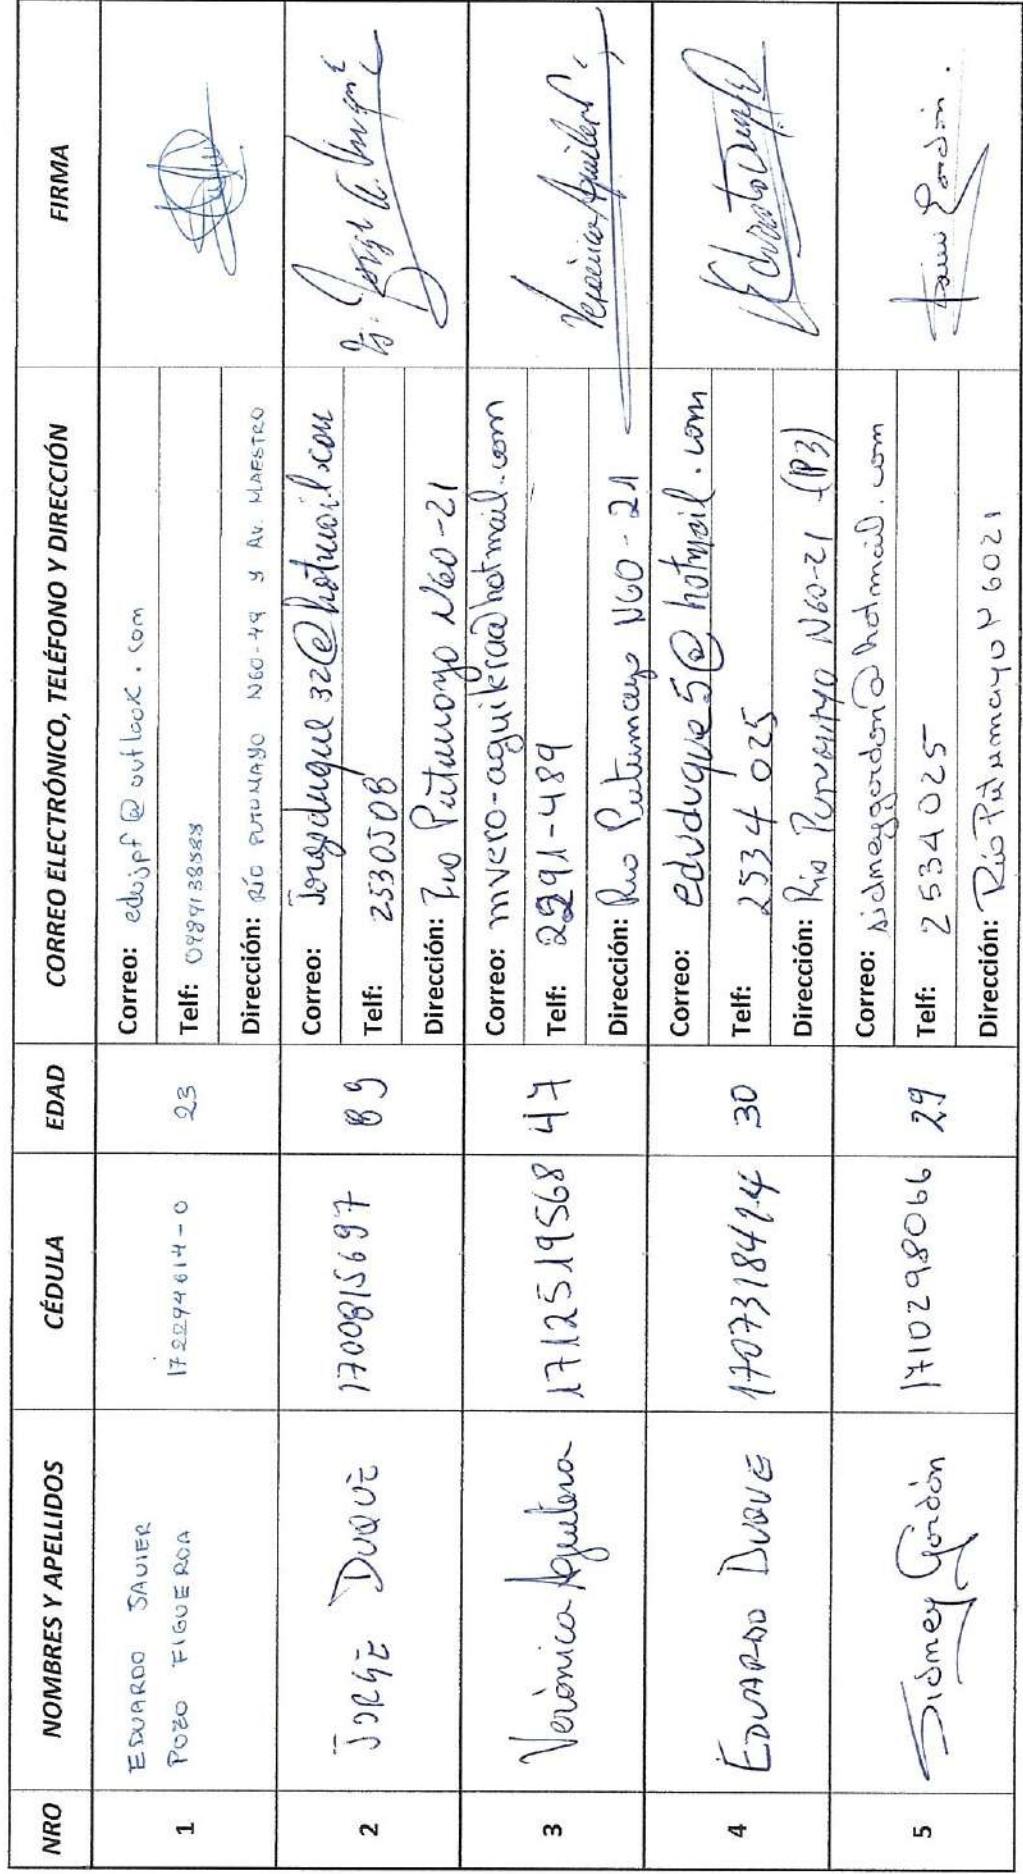 NRO NOMBRES Y APELLIDOS CÉDULA EDAD CORREO ELECTRÓNICO, TELÉFONO Y DIRECCIÓN FIRMA
1 EDUARDO JAVIER
POZO FIGUEROA
172294614-0 23
Correo: edujpf@outlook.com
Telf:
Dirección: RÍO PUTUMAYO N60-49 y AV. MAESTRO
2 JORGE DUQUE 1700815697 89
Correo: Jorgeduque32@hotmail.com
Telf: 2530508
Dirección: Rio Putumayo N60-21
Jorge Duque
3 Verónica Aguilera 1712519568 47
Correo: mvero-aguilera@hotmail.com
Telf: 2291-489
Dirección: Rio Putumayo N60-21
Verónica Aguilera
4 EDUARDO DUQUE 30
Correo: eduduque5@hotmail.com
Telf: 2534025
Dirección: Rio Putumayo N60-21 (P3)
Eduardo Duque
5 Sidney Gordón 1710298066 29
Correo: sidneygordon@hotmail.com
Telf: 2534025
Dirección: Río Putumayo N6021